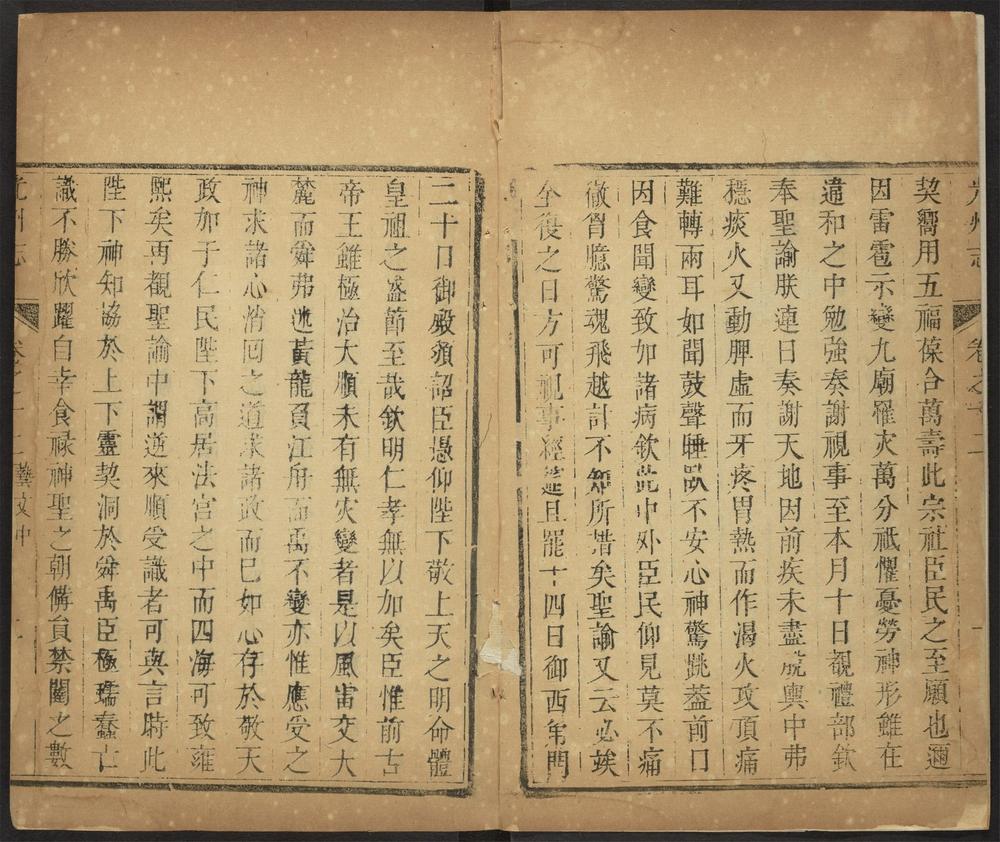 光州志 卷之十二 一
契嚮用五福葆合萬壽此宗社臣民之至願也邇
因雷雹示變九廟罹灾萬分祗懼憂勞神形雖在
違和之中勉強奏謝視事至本月十日覩禮部欽
奉聖諭朕連日奏謝天地因前疾未盡脫輿中弗
穩痰火又動脾虛而牙疼胃熱而作渴火攻頂痛
難轉兩耳如聞鼓聲睡臥不安心神驚跳葢前日
因食聞變致如諸病欽此中外臣民仰見莫不痛
徹胷臆驚魂飛越計不知所措矣聖諭又云必俟
全復之日方可視事經筵且罷十四日御西角門
二十日御殿頒詔臣愚仰陛下敬上天之明命體
皇祖之盛節至哉欽明仁孝無以加矣臣惟前古
帝王雖極治大順未有無灾變者是以風雷交大
麓而舜弗迷黃龍負江舟而禹不變亦惟應受之
神求諸心悄囘之道求諸政而已如心存於敬天
政加于仁民陛下高居法宮之中而四海可致雍
熙矣再覩聖諭中謂逆來順受識者可與言時此
陛下神知協於上下靈契洞於舜禹臣極孺蠢亡
識不勝欣躍自幸食祿神聖之朝備員禁闥之數
光州志 卷之十二 藝文中 二